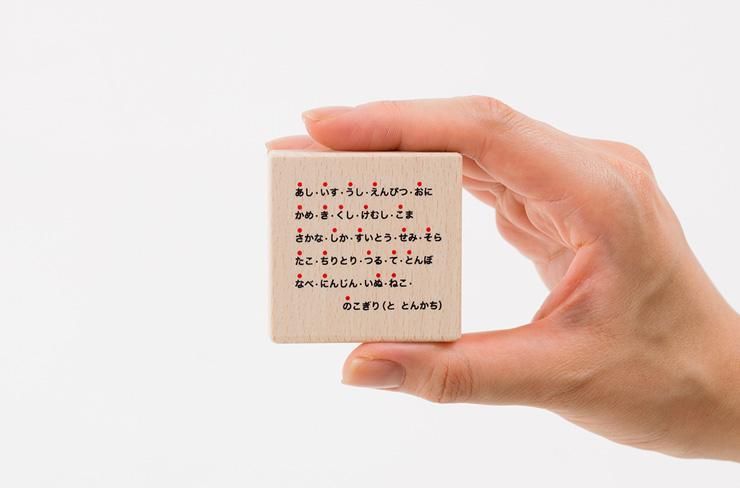 あし・いす・うし・えんぴつ・おに
かめ・き・くし・けむし・こま
さかな・しか・すいとう・せみ・そら
たこ・ちりとり・つる・て・とんぼ
なべ・にんじん・いぬ・ねこ・
のこぎり(と とんかち)